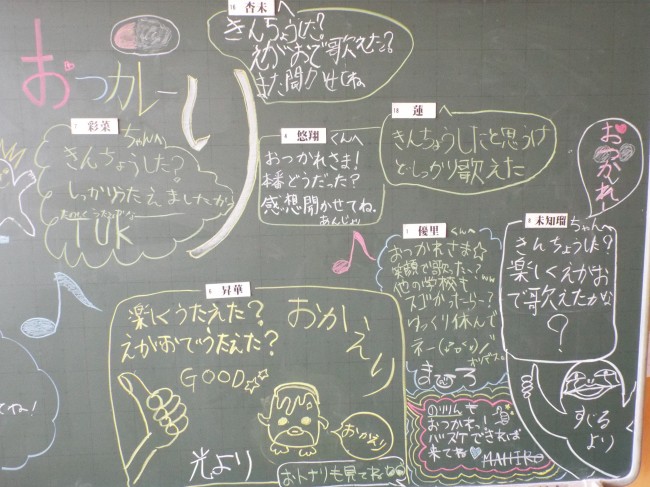 おつカレー
杏未
きんちょうした?
えがおで歌えた?
また聞かせてね
7 彩菜
ちゃんへ
きんちょうした?
しっかりうたえましたか?
TUK
4 悠翔
くんへ
おつかれさま!
本番どうだった?
感想聞かせてね。
あんじより
10 蓮
へ
きんちょうしたと思うけ
ど しっかり歌えた
おつかれー!
未知瑠
ちゃんへ
きんちょうした?
楽しくえがお
で歌えたかな
?
すじる
より
優里
くんへ
おつかれさま☆
笑顔で歌った~?
他の学校も
スゴかったーらー?
ゆっくり休んで
ネー
まひろ
昇華
楽しくうたえた?
えがおでうたえた?
GOOD
おかえり
おかえり
光より
おトナリも見てね
おつかれっ!
バスケできれば
来てね
MAHIRO
てね!